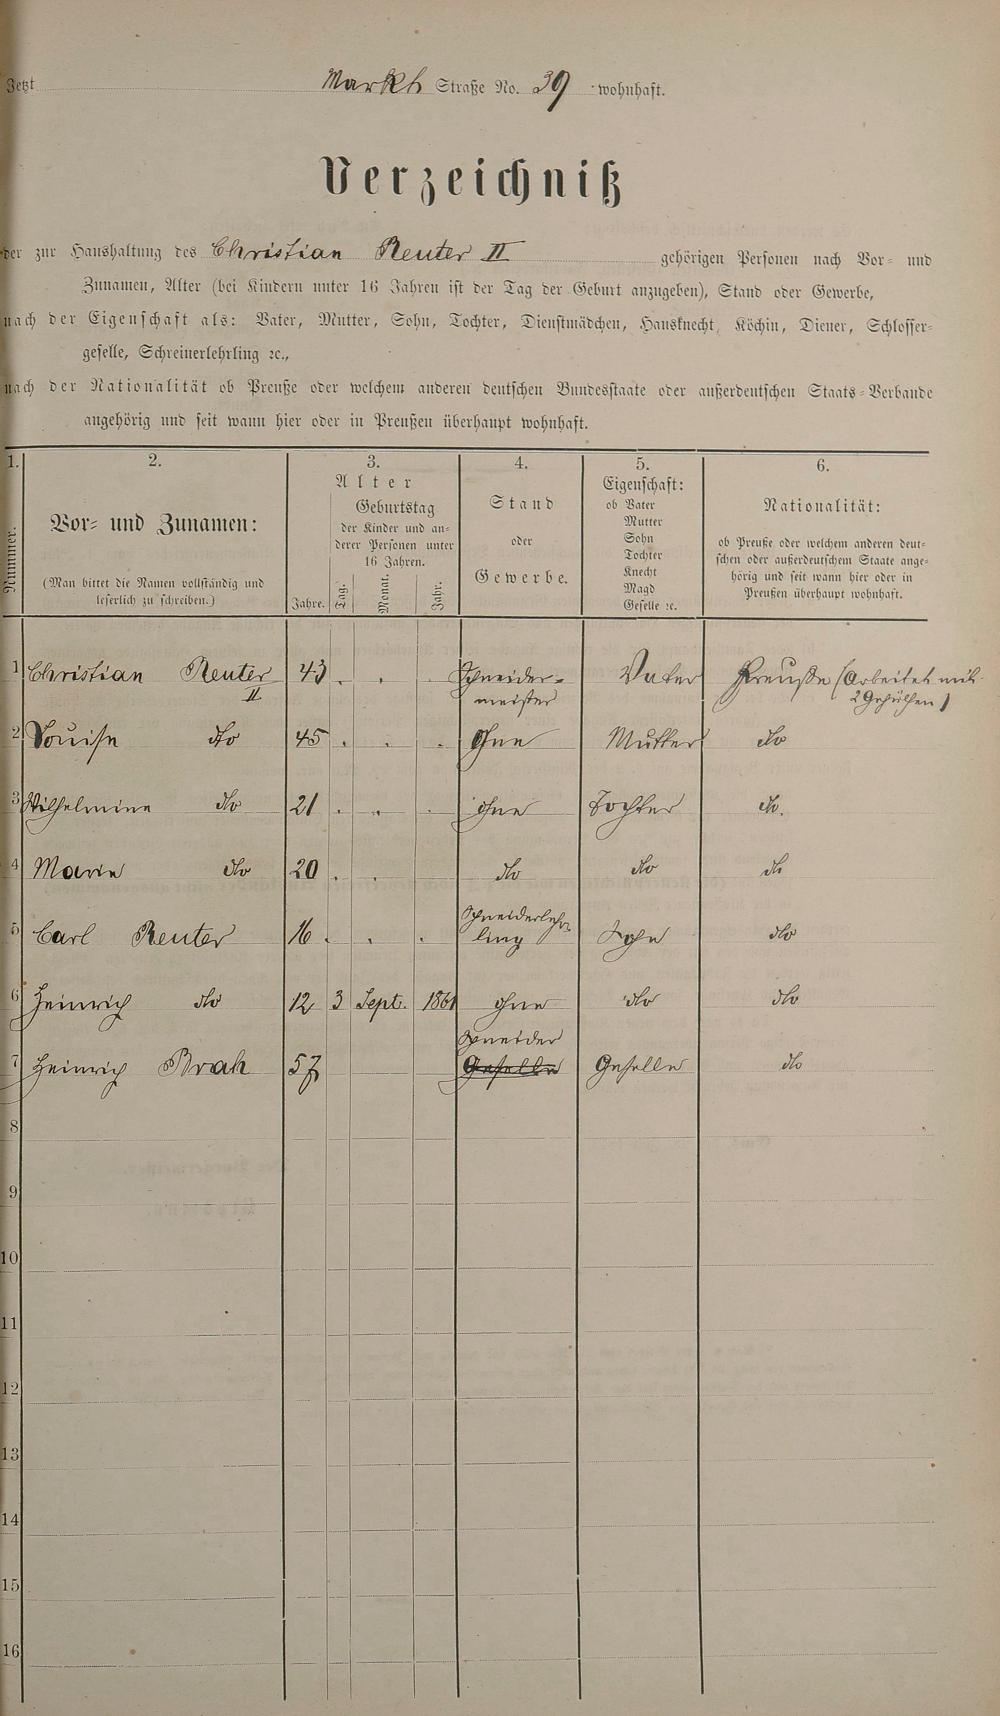 Jetzt Markt Straße No. 39 wohnhaft.
Verzeichniß
der zur Haushaltung des Christian Reuter II gehörigen Personen nach Vor- und
Zunamen, Alter (bei Kindern unter 16 Jahren ist der Tag der Geburt anzugeben), Stand oder Gewerbe,
nach der Eigenschaft als: Vater, Mutter, Sohn, Tochter, Dienstmädchen, Hausknecht, Köchin, Diener, Schlosser-
geselle, Schreinerlehrling ꝛc.,
nach der Nationalität ob Preuße oder welchem anderen deutschen Bundesstaate oder außerdeutschen Staats-Verbande
angehörig und seit wann hier oder in Preußen überhaupt wohnhaft.
1.
Nummer.
2.
Vor- und Zunamen:
(Man bittet die Namen vollständig und
leserlich zu schreiben.)
3.
Alter
Geburtstag
der Kinder und an-
derer Personen unter
16 Jahren.
Jahre. Tag. Monat. Jahr.
4.
Stand
oder
Gewerbe.
5.
Eigenschaft:
ob Vater
Mutter
Sohn
Tochter
Knecht
Magd
Geselle ꝛc.
6.
Nationalität:
ob Preuße oder welchem anderen deut-
schen oder außerdeutschem Staate ange-
hörig und seit wann hier oder in
Preußen überhaupt wohnhaft.
1 Christian Reuter II 43 Schneider- Vater Preuße (arbeitet mit
meister 2 Gehülfen)
2 Louise dto 45 ohne Mutter dto
3 Wilhelmine dto 21 ohne Tochter dto.
4 Marie dto 20 dto dto dto
5 Carl Reuter 16 Schneiderlehr- Sohn dto
ling
6 Heinrich dto 12 3 Sept. 1861 ohne dto dto
7 Heinrich Brah 57 Schneider Geselle dto
Geselle
8
9
10
11
12
13
14
15
16